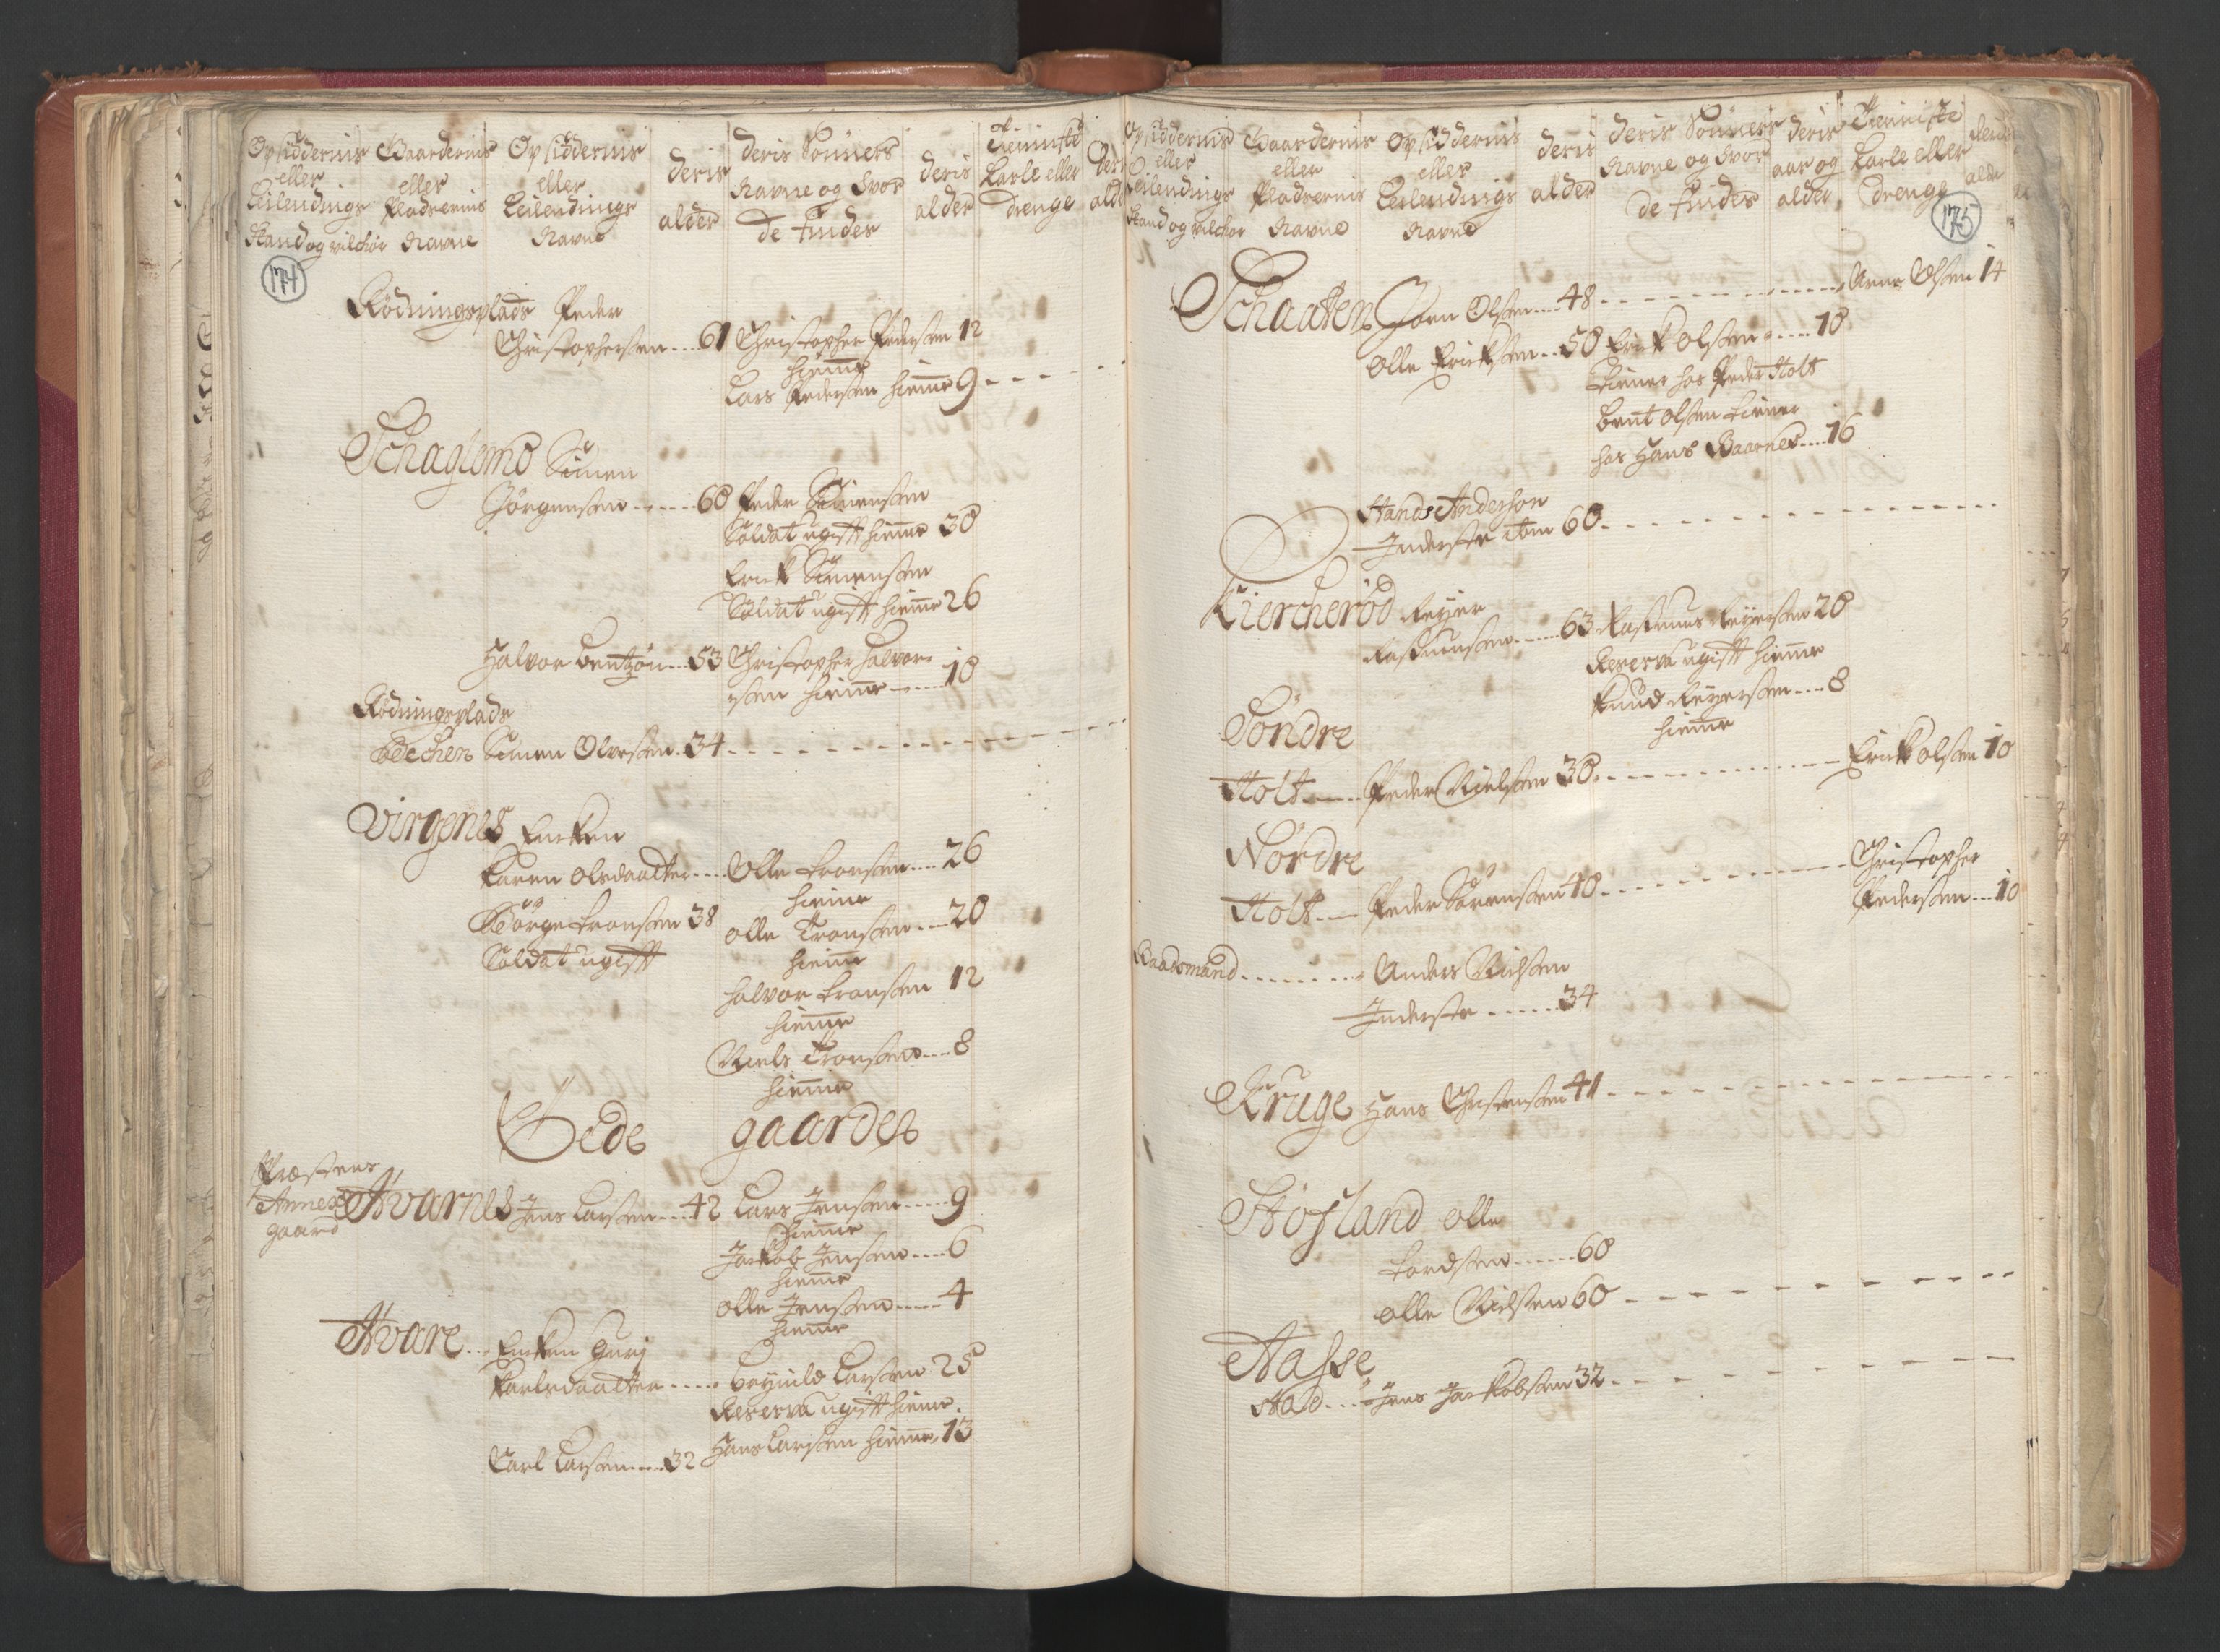 Opsiddernis
eller
Leilendings
Stand og vilchor
Gaardernis
eller
Pladsernis
Navne
Opsiddernis
eller
Leilendings
Navne
deris
alder
deris Sönners
Navne og hvor
de findes
deris
alder
Tienniste
Karle eller
drenge
deris
alder
174
Rödningsplads Peder
Christophersen 61 Christopher Pedersen 12
hiemme
Lars Pedersen hiemme 9
Schaglemo Simen
Jörgensen 60 Peder Simensen
Soldat ugift hiemme 30
Erick Simensen
Soldat ugift hiemme 26
Halvor Bentzön 53 Christopher Halvor-
sen hiemme 18
Rödningsplads
Bechen Simen Olvesen 34
Virgenes Encken
Karen Olsdaatter Olle Tronsen 26
hieme
Börge Tronsen 38 olle Tronsen 20
Soldat ugift hieme
halvor Tronsen 12
hieme
Niels Tronsen 8
hiemme
Öede gaarder
Præstens
Annex
gaard
Hvarnes Jens Larsen 42 Lars Jensen 9
hieme
Jackob Jensen 6
hieme
olle Jensen 4
hieme
Hvare Encken Gurj
Karlsdaatter Larsen 25
Reserve ugift hieme
Hans Larsen hieme 13
Carl Larsen 32
Opsiddernis
eller
Leilendings
Stand og vilchor
Gaardernis
eller
Pladsernis
Navne
Opsiddernis
eller
Leilendings
Navne
deris
alder
deris Sönners
Navne og hvor
de findes
deris
aar og
alder
Tienniste
Karle eller
drenge
deris
alder
175
Schaaten Jörn Olsen 48 Arne Olsen 14
Olle Ericksen 50 Erick Olsen 10
tiener hos Peder Holt
Bent Olsen tiener
hos Hans Gaarnes 16
Hans Anderson
Inderste tom 60
Kiercheröd Reyer
Rasmusen 63 Rasmus Reyersen 20
Reserve ugift hieme
Knud Reyersen 8
hieme
Söndre
Holt Peder Nielsen 30 Erick Olsen 10
Nordre
Holt Peder Sörensen 40 Christopher
Pedersen 10
Baadsmand Anders Nielsen
Inderste 34
Kruge Hans Christensen 41
Höfland olle
Tordsen 60
olle Nielsen 60
Aasse
Jens Jackobsen 32